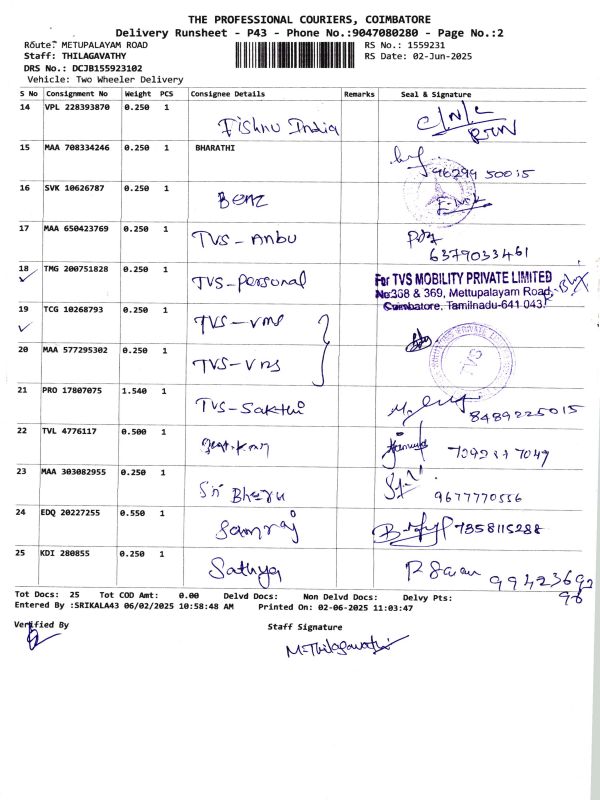 THE PROFESSIONAL COURIERS, COIMBATORE
Delivery Runsheet - P43 - Phone No.:9047080280 - Page No.:2
Route: METUPALAYAM ROAD RS No.: 1559231
Staff: THILAGAVATHY RS Date: 02-Jun-2025
DRS No.: DCJB155923102
Vehicle: Two Wheeler Delivery
S No Consignment No Weight PCS Consignee Details Remarks Seal & Signature
14 VPL 228393870 0.250 1 Fishnu India C/N/C
15 MAA 708334246 0.250 1 BHARATHI 96299 50015
16 SVK 10626787 0.250 1 Benz
17 MAA 650423769 0.250 1 TVS-Anbu 6379033461
18 TMG 200751828 0.250 1 TVS-personal
For TVS MOBILITY PRIVATE LIMITED
No:368 & 369, Mettupalayam Road,
Coimbatore, Tamilnadu-641 043.
19 TCG 10268793 0.250 1 TVS-vms
20 MAA 577295302 0.250 1 TVS-Vms TVS
21 PRO 17807075 1.540 1 TVS-Sakthi 8489225015
22 TVL 4776117 0.500 1
23 MAA 303082955 0.250 1 Sri Bheru 9677770556
24 EDQ 20227255 0.550 1 Samraj 7358115288
25 KDI 280855 0.250 1 Sathya
Tot Docs: 25 Tot COD Amt: 0.00 Delvd Docs: Non Delvd Docs: Delvy Pts:
Entered By :SRIKALA43 06/02/2025 10:58:48 AM Printed On: 02-06-2025 11:03:47
Verified By Staff Signature
M.Thilagavathi